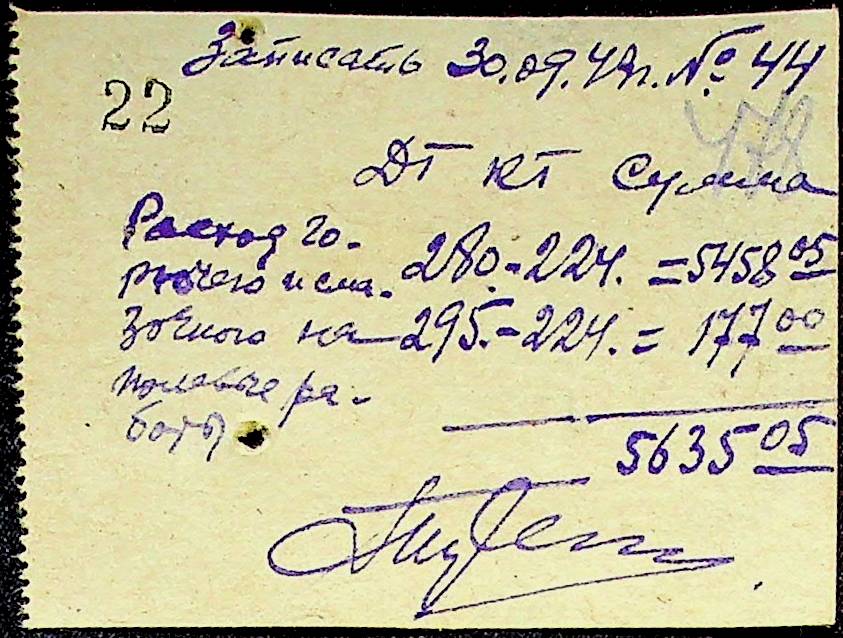 Записать 30.09.49г. № 44
22
478
ДТ КТ Сумма
Расход го-
рючего и сма- 280.-224. =5458 05
зочного на 295.-224. = 177 00
полевые ра-
боты
5635 05